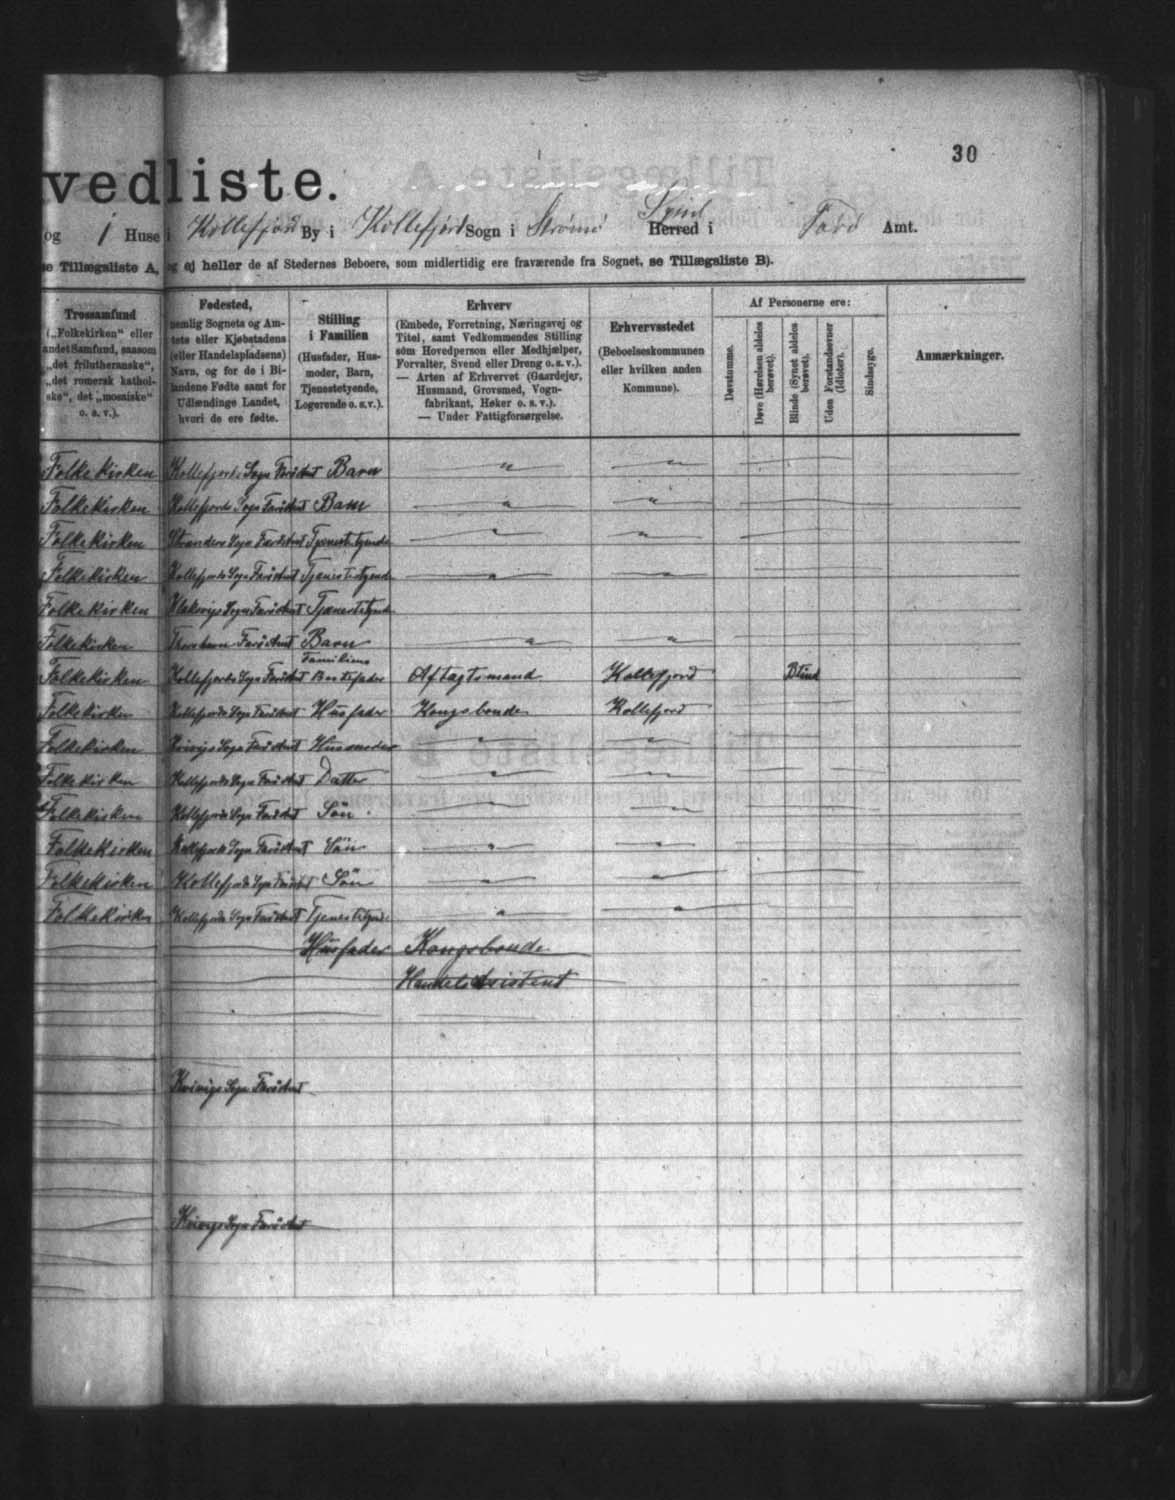 30
vedliste.
og 1 Huse i Kollefjord By i Kollefjord Sogn i Strømø Syssel Herred i Farø Amt.
se Tillægsliste A, og ej heller de af Stedernes Beboere, som midlertidig ere fraværende fra Sognet, se Tillægsliste B).
Trossamfund
(„Folkekirken“ eller
andet Samfund, saasom
„det frilutheranske“,
„det romersk kathol-
ske“, det „mosaiske“
o. s. v.).
Fødested,
nemlig Sognets og Am-
tets eller Kjøbstadens
(eller Handelspladsens)
Navn, og for de i Bi-
landene Fødte samt for
Udlændinge Landet,
hvori de ere fødte.
Stilling
i Familien
(Husfader, Hus-
moder, Barn,
Tjenestetyende,
Logerende o. s. v.).
Erhverv
(Embede, Forretning, Næringsvej og
Titel, samt Vedkommendes Stilling
som Hovedperson eller Medhjælper,
Forvalter, Svend eller Dreng o. s. v.).
— Arten af Erhvervet (Gaardejer,
Husmand, Grovsmed, Vogn-
fabrikant, Høker o. s. v.).
— Under Fattigforsørgelse.
Erhvervsstedet
(Beboelseskommunen
eller hvilken anden
Kommune).
Af Personerne ere:
Døvstumme.
Døve (Hørelsen aldeles
berøvet).
Blinde (Synet aldeles
berøvet).
Uden Forstandsevner
(Idioter).
Sindssyge.
Anmærkninger.
Folkekirken Kollefjords Sogn Farø Amt Barn " "
Folkekirken Kollefjords Sogn Farø Amt Barn " "
Folkekirken Stranders Sogn Farø Amt Tjenestetyende " "
Folkekirken Kollefjords Sogn Farø Amt Tjenestetyende " "
Folkekirken Klaksvigs Sogn Farø Amt Tjenestetyende
Folkekirken Thorshavn Farø Amt Barn " "
Folkekirken Kollefjords Sogn Farø Amt Familiens Bedstefader Aftagtsmand Kollefjord Blind
Folkekirken Kollefjords Sogn Farø Amt Husfader Kongsbonde Kollefjord
Folkekirken Kvivigs Sogn Farø Amt Husmoder " "
Folkekirken Kollefjords Sogn Farø Amt Datter " "
Folkekirken Kollefjords Sogn Farø Amt Sön " "
Folkekirken Kollefjords Sogn Farø Amt Sön " "
Folkekirken Kollefjords Sogn Farø Amt Sön " "
Folkekirken Kollefjords Sogn Farø Amt Tjenestetyende " "
Husfader Kongsbonde
Handels Asistent
Kvivigs Sogn Farø Amt
Kvivigs Sogn Farø Amt